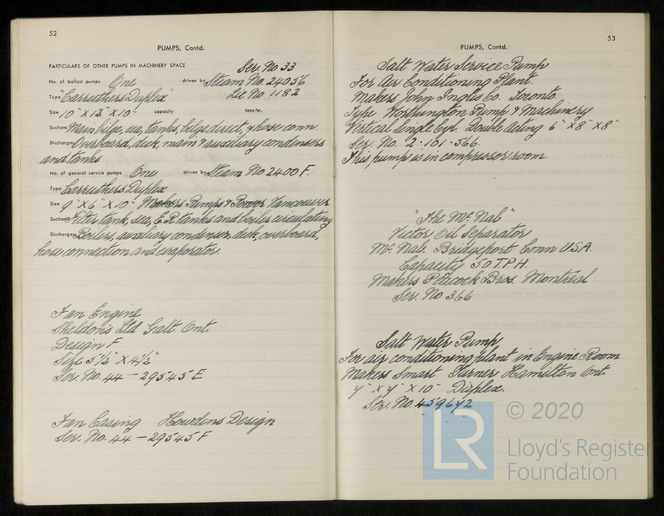 52
PUMPS, Contd.
PARTICULARS OF OTHER PUMPS IN MACHINERY SPACE
Ser. No 33
No. of ballast pumps One driven by Steam No. 24056
Type "Carruthers Duplex" Lic No 1182
Size 10" X 12" X 10" capacity tons/hr.
Suctions Main bilge, sea, tanks, bilge direct, & hose conn
Discharges Overboard, deck, main & auxiliary condensers
and tanks
No. of general service pumps One driven by Steam No 2400 F.
Type "Carruthers Duplex"
Size 9" X 6" X 10" Makers Pumps & Power Vancouver
Suctions Filter tank, sea, E.R. tanks and boiler circulating
Discharges Boilers, auxiliary condenser, deck, overboard,
hose connection and evaporator.
Fan Engine
Sheldon's Ltd Galt. Ont.
Design F
Size 5½" X 4½"
Ser. No. 44 - 29545 E
Fan Casing Howdens Design
Ser. No. 44 - 29545 F
53
PUMPS, Contd.
Salt Water Service Pump
For Air Conditioning Plant
Makers John Inglis Co. Toronto.
Type Worthington Pump & Machinery
Vertical single Cyl. Double Acting 6" X 8" X 8"
Ser. No. 2.101.566.
This pump is in compressor room
"The McNab"
Victor Oil Separator
McNab. Bridgeport Conn U.S.A.
Capacity 50 T.P.H.
Makers Peacock Bros. Montreal
Ser. No 366
Salt Water Pump
For air conditioning plant in Engine Room
Makers Smart Turner Hamilton Ont.
X 10" Duplex
Ser. No.
LR © 2020
Lloyd's Register
Foundation